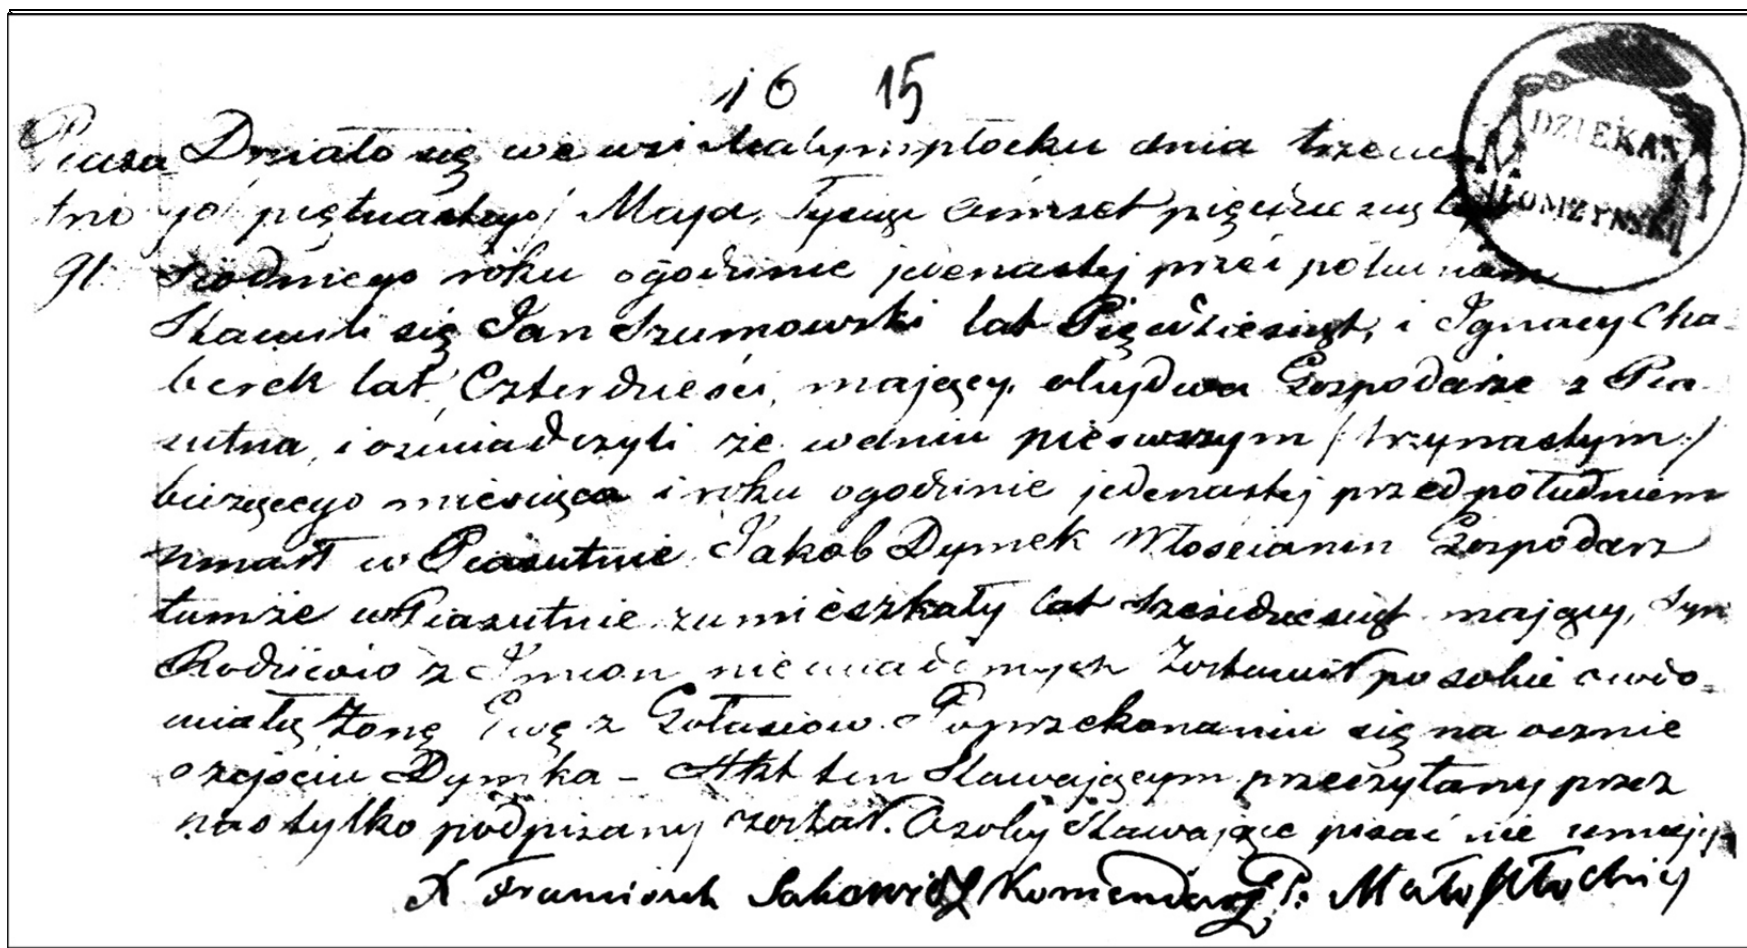 16 15
DZIEKAN
ŁOMZYNSKI
Piasu Działo się we wsi Małympłocku dnia trzecie
tno go / piętnastego / Maja, Tysiąc ośmset pięćdziesiąt
91. siódmego roku ogodzinie jedenastej przed południem
Stawili się Jan Szumowski lat Pięćdziesiąt, i Ignacy Cha-
berek lat Czterdzieści, mający, obydwa Gospodarze z Pia-
sutna, i oświadczyli że wdniu pierwszym / trzynastym /
bieżącego miesiąca i roku ogodzinie jedenastej przedpołudniem
umarł w Piasutnie Jakob Dymek Włościanin Gospodarz
tamże wPiasutnie zamieszkały lat sześćdziesiąt mający, syn
Rodziców z Imion niewiadomych Zostawił po sobie owdo-
wiałą żonę Ewę z Gołasiów. Poprzekonaniu się na ocznie
o zejściu Dymka - Akt ten Stawającym przeczytany przez
nas tylko podpisany został. Osoby stawające pisać nie umieją
X Franciszek Sakowicz Komendarz P. MałoPłocki